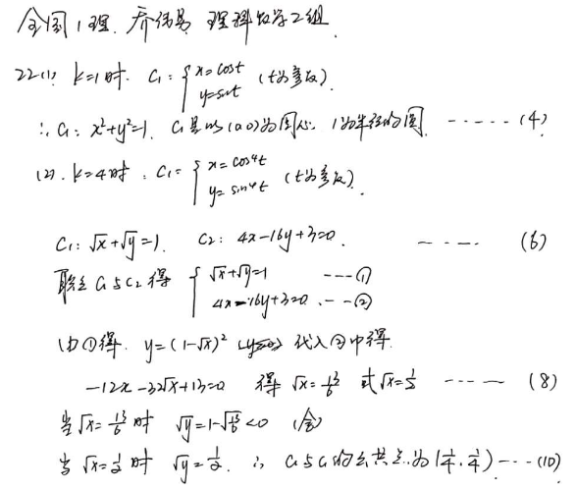 全国1理. 乔伟男 理科数学2组.
22(1) k=1时. C₁: { x=cost y=sint (t为参数).
∴C₁: x²+y²=1. C₁是以(0,0)为圆心. 1为半径的圆. ----- (4)
(2). k=4时. C₁: { x=cos⁴t y=sin⁴t (t为参数).
C₁: √x+√y=1. C₂: 4x-16y+3=0. ---- (6)
联立C₁与C₂得 { √x+√y=1 ---① 4x-16y+3=0 --②
由①得. y=(1-√x)² 代入②中得.
-12x-32√x+13=0 得 √x= 或√x=1/2 ---- (8)
当√x=13/6时 √y=1-√13/6<0 (舍)
当√x=1/2时 √y=1/2. ∴ C₁与C₂的公共点为(1/4,1/4) --- (10)